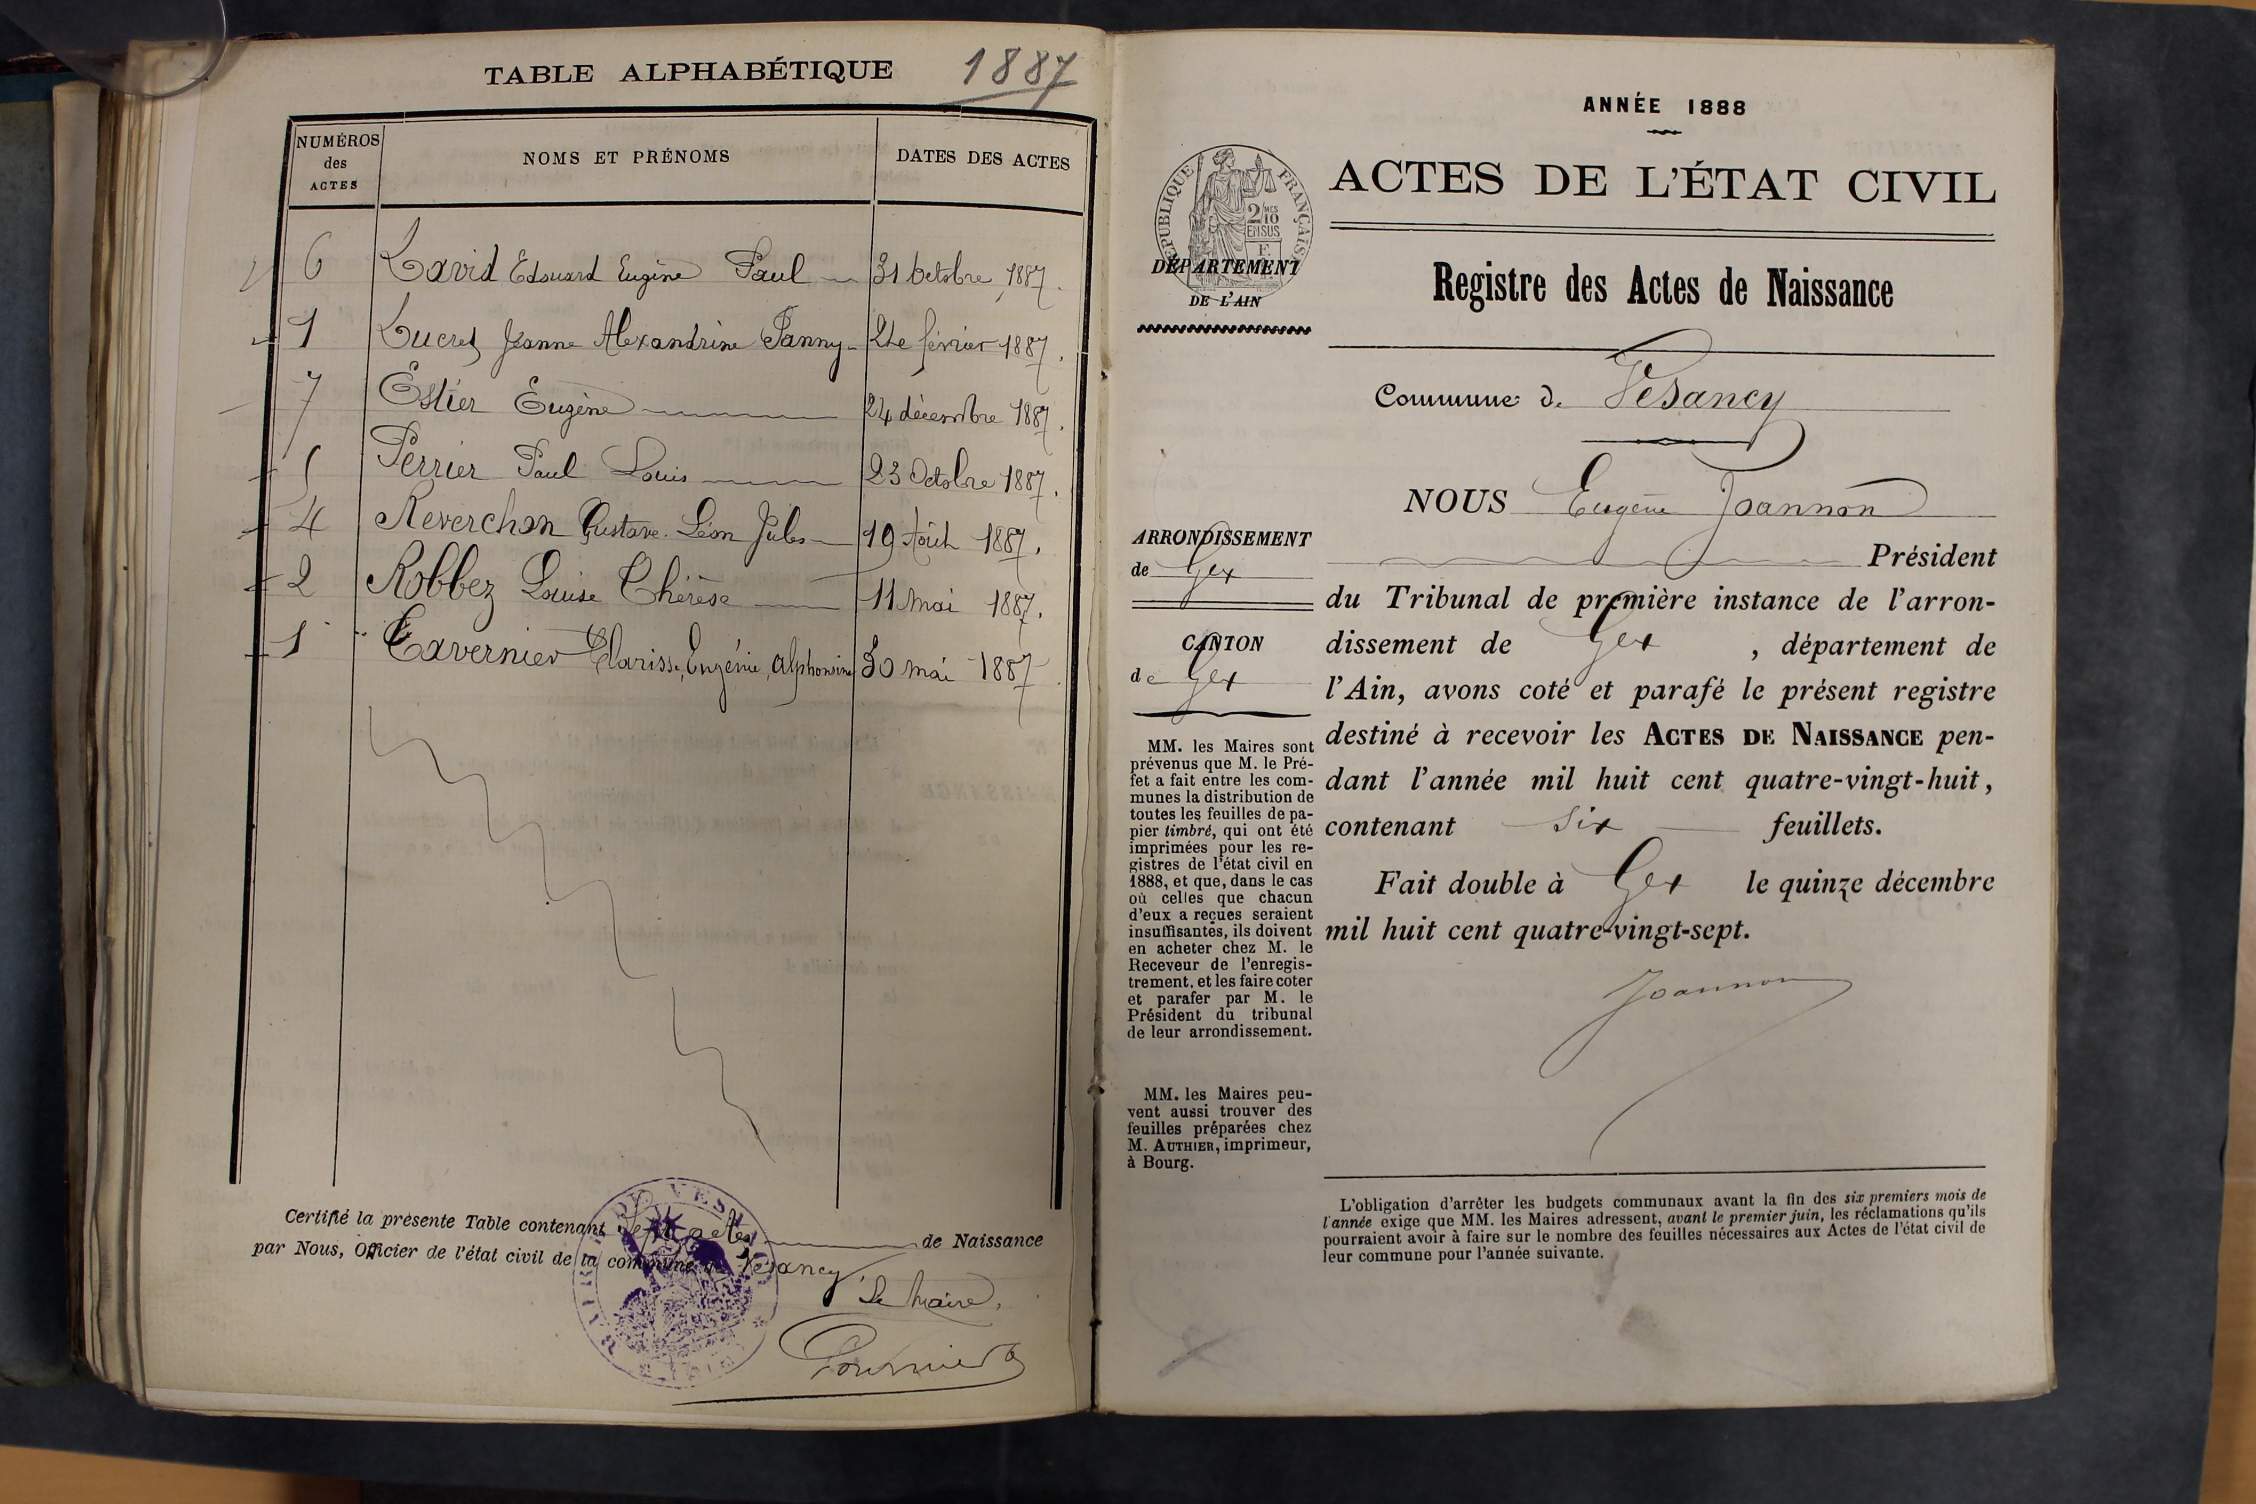 TABLE ALPHABÉTIQUE 1887
NUMÉROS des ACTES NOMS ET PRÉNOMS DATES DES ACTES
6 Lavid Edouard Eugène Paul 31 Octobre 1887.
1 Lucres Jeanne Alexandrine Fanny 2 février 1887.
7 Estier Eugène 24 décembre 1887.
5 Perrier Paul Louis 23 Octobre 1887.
4 Reverchon Gustave Léon Jules 19 Août 1887.
2 Robbez Louise Thérèse 11 mai 1887.
Tavernier Clarisse, Eugénie, Alphonsine 30 mai 1887
Certifié la présente Table contenant sept actes de Naissance
par Nous, Officier de l'état civil de la commune de Vesancy
Le Maire,
Fournier
ANNÉE 1888
RÉPUBLIQUE FRANÇAISE
2/10 MES
EN SUS
ACTES DE L'ÉTAT CIVIL
DÉPARTEMENT
DE L'AIN
Registre des Actes de Naissance
Commune de Vesancy
ARRONDISSEMENT
de Gex
CANTON
de Gex
MM. les Maires sont
prévenus que M. le Pré-
fet a fait entre les com-
munes la distribution de
toutes les feuilles de pa-
pier timbré, qui ont été
imprimées pour les re-
gistres de l'état civil en
1888, et que, dans le cas
où celles que chacun
d'eux a reçues seraient
insuffisantes, ils doivent
en acheter chez M. le
Receveur de l'enregis-
trement, et les faire coter
et parafer par M. le
Président du tribunal
de leur arrondissement.
MM. les Maires peu-
vent aussi trouver des
feuilles préparées chez
M. AUTHIER, imprimeur,
à Bourg.
NOUS Eugène Joannon
Président
du Tribunal de première instance de l'arron-
dissement de Gex , département de
l'Ain, avons coté et parafé le présent registre
destiné à recevoir les ACTES DE NAISSANCE pen-
dant l'année mil huit cent quatre-vingt-huit,
contenant six feuillets.
Fait double à Gex le quinze décembre
mil huit cent quatre-vingt-sept.
Joannon
L'obligation d'arrêter les budgets communaux avant la fin des six premiers mois de
l'année exige que MM. les Maires adressent, avant le premier juin, les réclamations qu'ils
pourraient avoir à faire sur le nombre des feuilles nécessaires aux Actes de l'état civil de
leur commune pour l'année suivante.